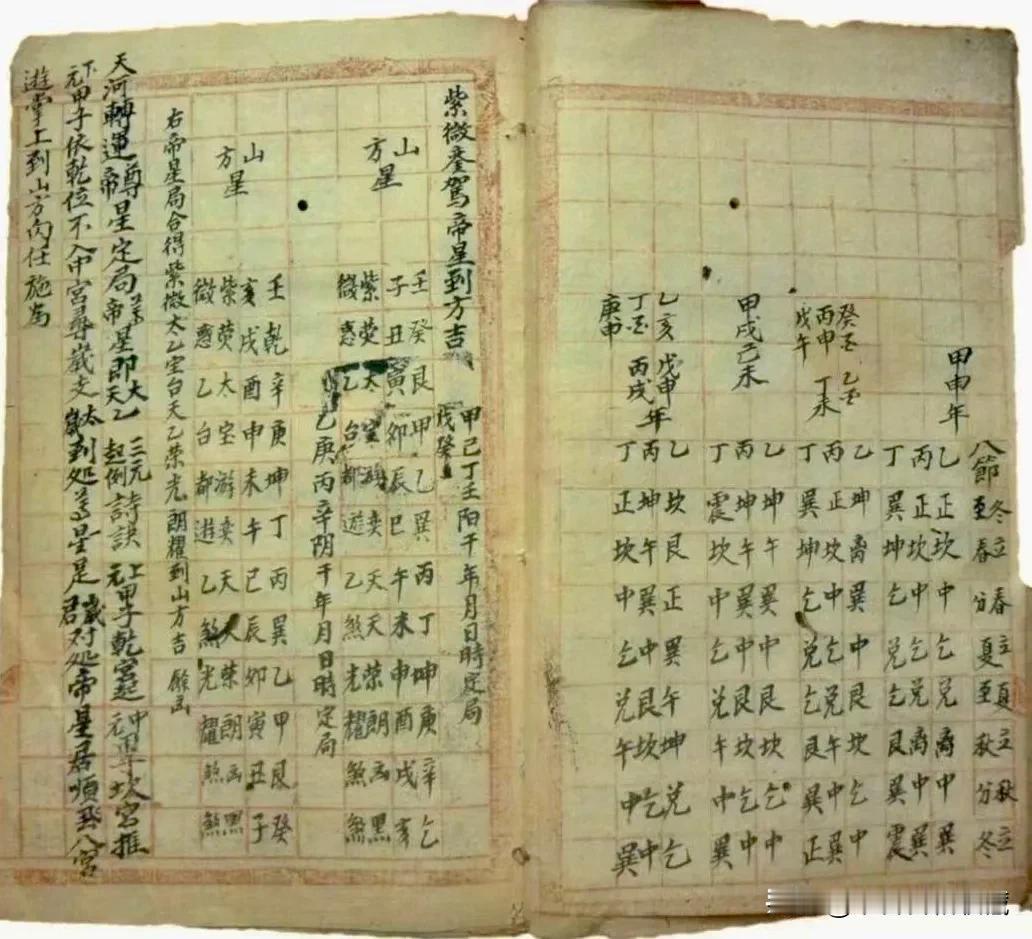 八節 冬至 立春 春分 立夏 夏至 立秋 秋分 立冬
甲申年
乙正坎中乞兑离中巽
丙正坎中乞兑离中巽
丁巽坤乞兑乞艮巽震
癸丑 乙丑
丙申 丁未
戊午
乙坤离巽中艮坎乞中
丙正坎中乞兑午中巽
丁巽坤乞兑乞艮巽正
甲戌己未
乙坤午巽中艮坎乞中
丙坤午巽中艮坎乞中
丁震坎中乞兑午中巽
乙亥 戊申年
丁丑 丙戌
庚申
乙坎艮正巽午坤兑乞
丙坤午巽中艮坎乞中
丁正坎中乞兑午中巽
紫微銮駕帝星到方吉
甲己丁壬阳干年月日時定局
戊癸
山
方星
壬癸艮甲乙巽丙丁坤庚辛乞
子丑寅卯辰巳午未申酉戌亥
紫荧太宝游奕天天荣朗幽黑
微惑乙台都遊乙煞光耀煞煞
乙庚丙辛阴干年月日時定局
山
方星
壬乾辛庚坤丁丙巽乙甲艮癸
亥戌酉申未午巳辰卯寅丑子
紫荧太宝游奕天天荣朗幽黑
微惑乙台都遊乙煞光耀煞煞
右帝星局合得紫微太乙宝台天乙荣光朗耀到山方吉 餘凶
天河轉運尊帝星定局 尊帝星即太乙天乙 三元起例詩訣 上元甲子乾宮起 中元甲子坎宮推
下元甲子依乾位不入中宮尋歲支 太歲到処尊星是 歲君对処帝星居順飛八宮
遊掌上到山方向任施為